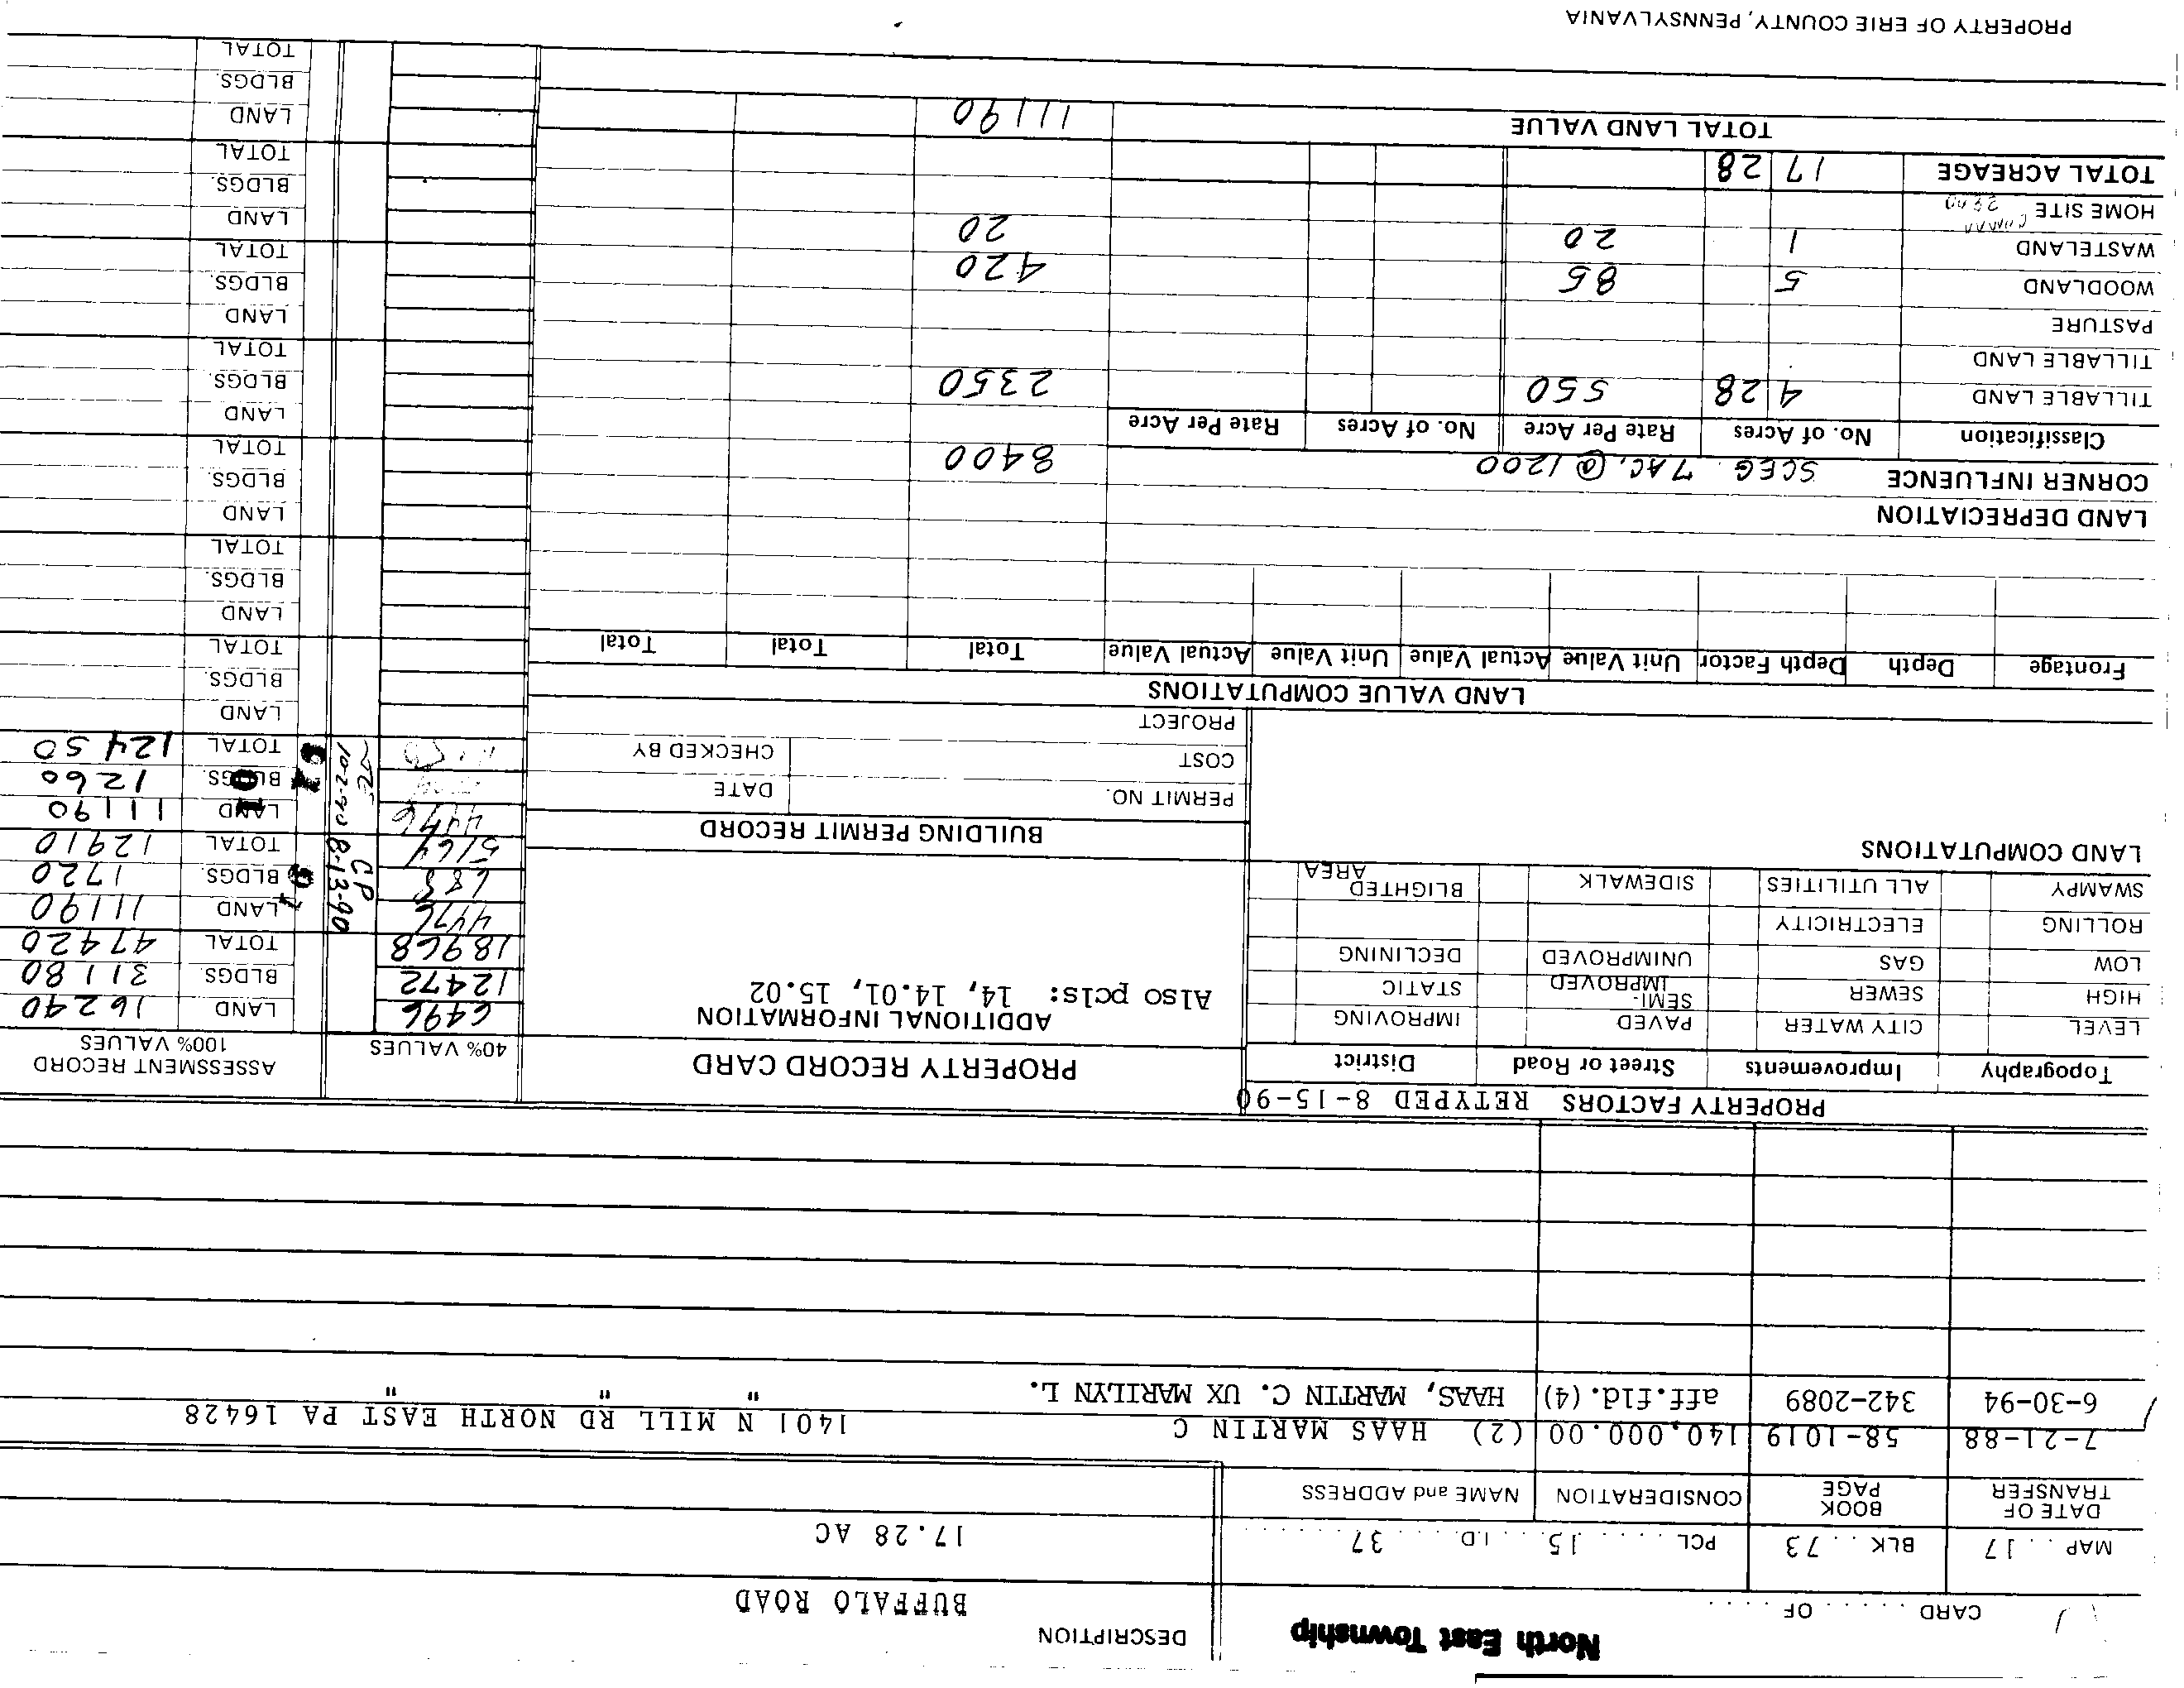 North East Township
DESCRIPTION
CARD ...... OF ......
BUFFALO ROAD
MAP .. 17 BLK .. 73 PCL ..... 15 ... I.D. .... 37 ......
17.28 AC
DATE OF TRANSFER BOOK PAGE CONSIDERATION NAME and ADDRESS
7-21-88 58-1019 140,000.00 (2) HAAS MARTIN C 1401 N MILL RD NORTH EAST PA 16428
6-30-94 342-2089 aff.fld. (4) HAAS, MARTIN C. UX MARILYN L. " " "
PROPERTY FACTORS RETYPED 8-15-90
Topography Improvements Street or Road District
LEVEL CITY WATER PAVED IMPROVING
HIGH SEWER SEMI-IMPROVED STATIC
LOW GAS UNIMPROVED DECLINING
ROLLING ELECTRICITY
SWAMPY ALL UTILITIES SIDEWALK BLIGHTED AREA
LAND COMPUTATIONS
PROPERTY RECORD CARD
ADDITIONAL INFORMATION
Also pcls: 14, 14.01, 15.02
BUILDING PERMIT RECORD
PERMIT NO. DATE
COST CHECKED BY
PROJECT
40% VALUES ASSESSMENT RECORD 100% VALUES
6496 LAND 16240
12472 BLDGS. 31180
18968 TOTAL 47420
4476 CP 8-13-90 LAND 11190
688 BLDGS. 1720
5164 TOTAL 12910
4476 10-2-90 LAND 11190
BLDGS. 1260
TOTAL 12450
LAND
BLDGS.
TOTAL
LAND
BLDGS.
TOTAL
LAND
BLDGS.
TOTAL
LAND
BLDGS.
TOTAL
LAND
BLDGS.
TOTAL
LAND
BLDGS.
TOTAL
LAND
BLDGS.
TOTAL
LAND VALUE COMPUTATIONS
Frontage Depth Depth Factor Unit Value Actual Value Unit Value Actual Value Total Total Total
LAND DEPRECIATION
CORNER INFLUENCE SCEG. 7 AC. @ 1200 8400
Classification No. of Acres Rate Per Acre No. of Acres Rate Per Acre
TILLABLE LAND 4 28 550 2350
TILLABLE LAND
PASTURE
WOODLAND 5 85 420
WASTELAND 1 20 20
HOME SITE
TOTAL ACREAGE 17 28
TOTAL LAND VALUE 11190
PROPERTY OF ERIE COUNTY, PENNSYLVANIA